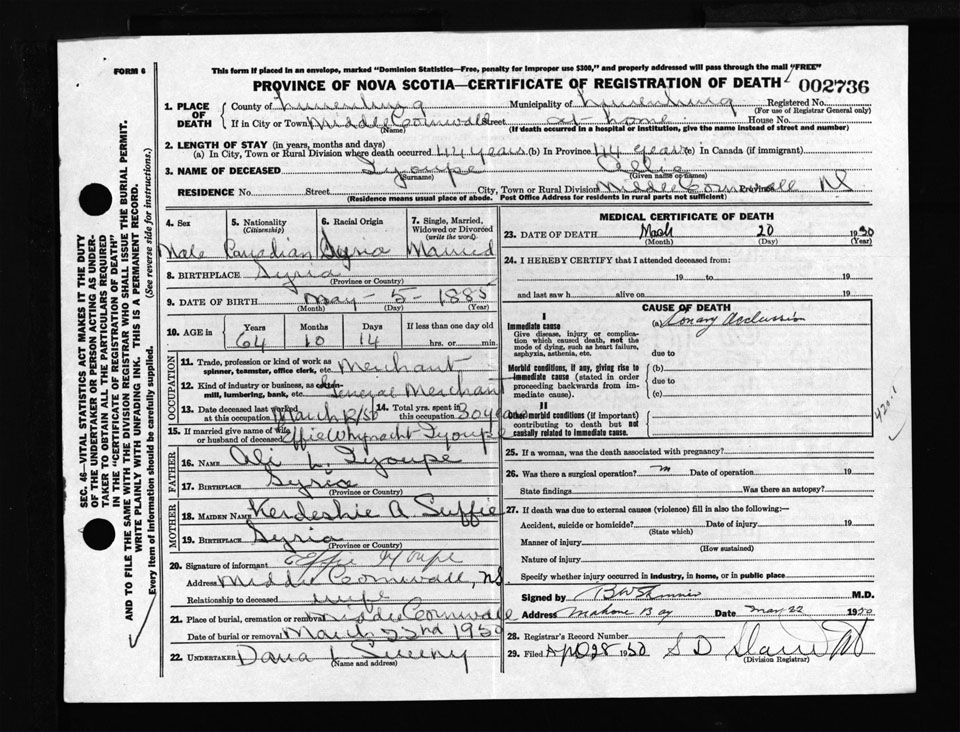 FORM 6
This form if placed in an envelope, marked "Dominion Statistics—Free, penalty for improper use $300," and properly addressed will pass through the mail "FREE"
PROVINCE OF NOVA SCOTIA—CERTIFICATE OF REGISTRATION OF DEATH 002736
1. PLACE OF DEATH
County of Lunenburg Municipality of Lunenburg Registered No.
(For use of Registrar General only)
If in City or Town Middle Cornwall Street at home House No.
(Name) (If death occurred in a hospital or institution, give the name instead of street and number)
2. LENGTH OF STAY (in years, months and days)
(a) In City, Town or Rural Division where death occurred 44 years (b) In Province 44 years (c) In Canada (if immigrant)
3. NAME OF DECEASED Tyoupe
(Surname) (Given name or names)
RESIDENCE No. Street City, Town or Rural Division Middle Cornwall NS
(Residence means usual place of abode. Post Office Address for residents in rural parts not sufficient)
4. Sex 5. Nationality (Citizenship) 6. Racial Origin 7. Single, Married, Widowed or Divorced (write the word)
Male Canadian Syria Married
8. BIRTHPLACE Syria
(Province or Country)
9. DATE OF BIRTH May - 5 - 1885
(Month) (Day) (Year)
10. AGE in Years Months Days If less than one day old
64 10 14 hrs. or min.
OCCUPATION
11. Trade, profession or kind of work as spinner, teamster, office clerk, etc. Merchant
12. Kind of industry or business, as cotton-mill, lumbering, bank, etc. General Merchant
13. Date deceased last worked at this occupation March 14. Total yrs. spent in this occupation 30 years
15. If married give name of wife or husband of deceased Effie Whynacht Tyoupe
FATHER
16. NAME Ali L. Tyoupe
17. BIRTHPLACE Syria
(Province or Country)
MOTHER
18. MAIDEN NAME Kerdeshie A. Suffie
19. BIRTHPLACE Syria
(Province or Country)
20. Signature of informant Effie Tyoupe
Address Middle Cornwall, NS
Relationship to deceased wife
21. Place of burial, cremation or removal Middle Cornwall
Date of burial or removal March 22nd 1950
22. UNDERTAKER Dana L Sweeny
(Name and address)
MEDICAL CERTIFICATE OF DEATH
23. DATE OF DEATH March 20 1950
(Month) (Day) (Year)
24. I HEREBY CERTIFY that I attended deceased from:
19 to 19
and last saw h alive on 19
CAUSE OF DEATH
I
Immediate cause (a)
Give disease, injury or complication which caused death, not the mode of dying, such as heart failure, asphyxia, asthenia, etc.
due to
Morbid conditions, if any, giving rise to immediate cause (stated in order proceeding backwards from immediate cause).
(b)
due to
(c)
II
Other morbid conditions (if important) contributing to death but not causally related to immediate cause.
25. If a woman, was the death associated with pregnancy?
26. Was there a surgical operation? Date of operation 19
State findings Was there an autopsy?
27. If death was due to external causes (violence) fill in also the following:—
Accident, suicide or homicide? Date of injury 19
(State which)
Manner of injury
(How sustained)
Nature of injury
Specify whether injury occurred in industry, in home, or in public place
Signed by M.D.
Address Mahone Bay Date Mar 22 1950
28. Registrar's Record Number
29. Filed April 28 1950 S D
(Division Registrar)
SEC. 46—VITAL STATISTICS ACT MAKES IT THE DUTY OF THE UNDERTAKER OR PERSON ACTING AS UNDERTAKER TO OBTAIN ALL THE PARTICULARS REQUIRED IN THE "CERTIFICATE OF REGISTRATION OF DEATH" AND TO FILE THE SAME WITH THE DIVISION REGISTRAR WHO SHALL ISSUE THE BURIAL PERMIT.
WRITE PLAINLY WITH UNFADING INK. THIS IS A PERMANENT RECORD.
Every item of information should be carefully supplied. (See reverse side for instructions.)